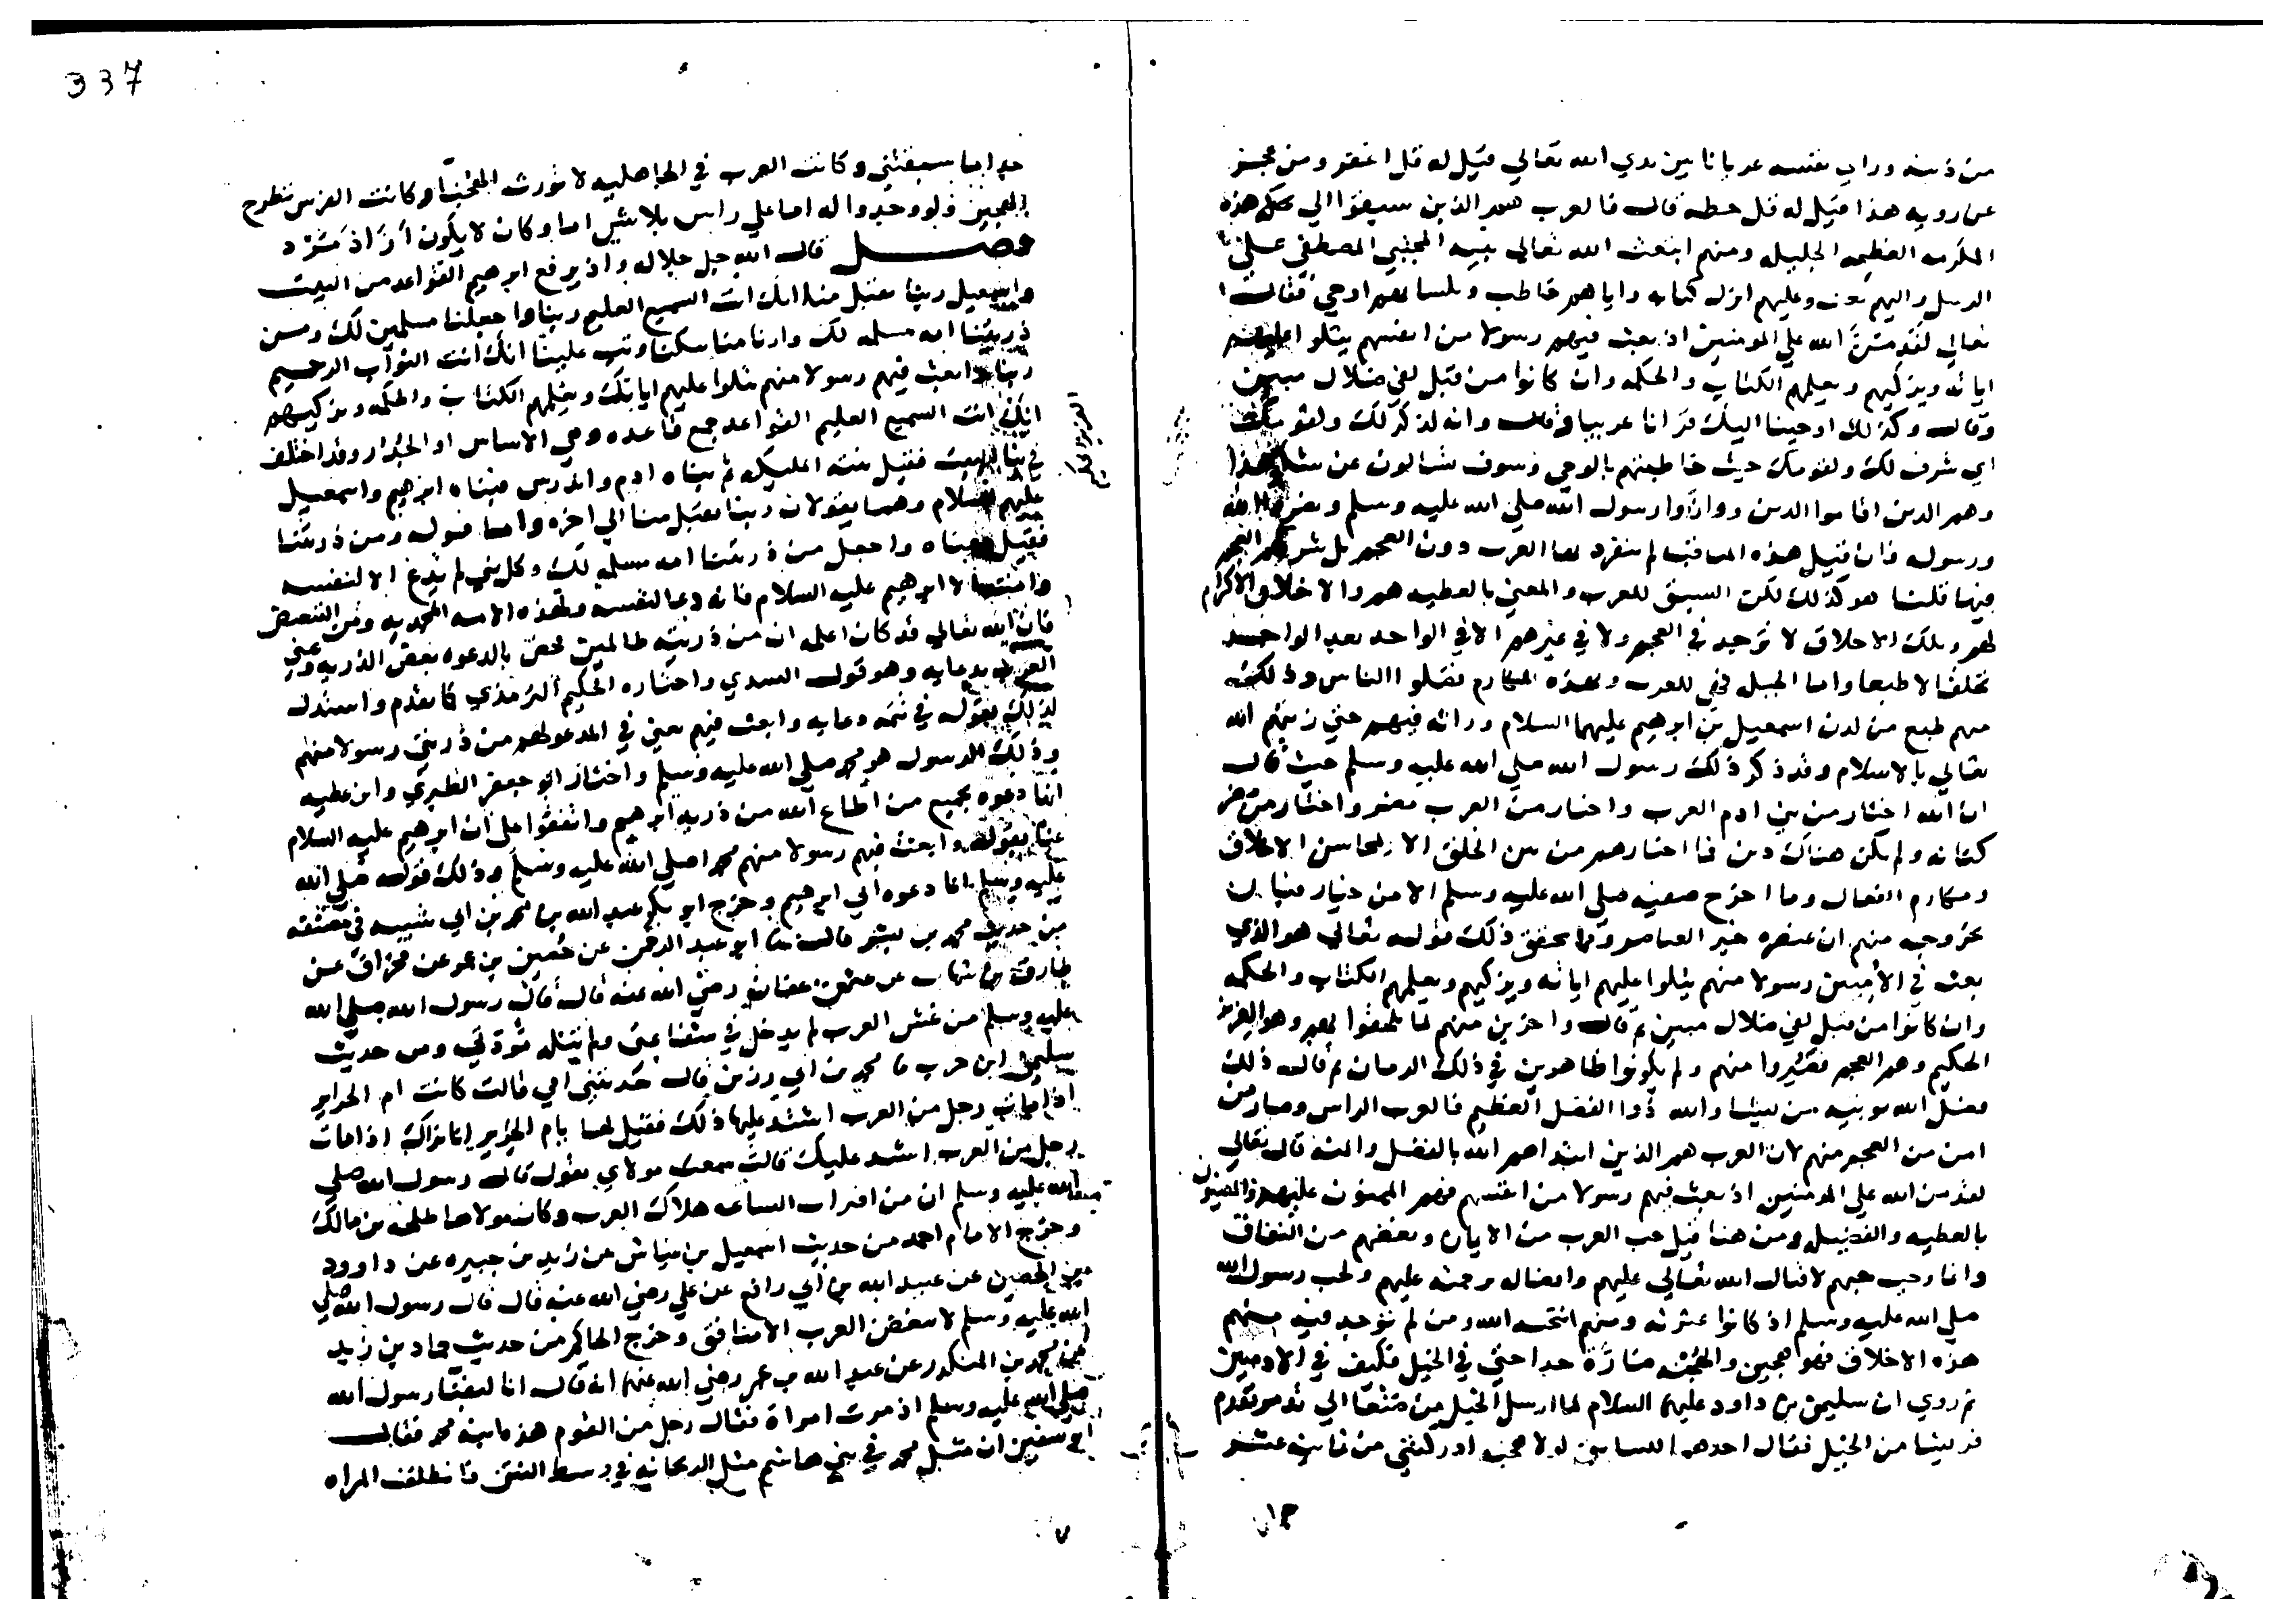 من ذنبه وراى نفسه عريانا بين يدي الله تعالى قيل له قل اغفر ومن عجز
عن رويه هذا قيل له قل حطه قال فالعرب هم الذين سبقوا الى هذه
المكرمه العظيمه الجليله ومنهم ابتعث الله تعالى نبيه المجتبي المصطفي علي
الرسل واليهم بعث وعليهم انزل كتابه واياهم خاطب وبلسانهم اوحي فقال
تعالي لقد من الله علي المومنين اذ بعث فيهم رسولا من انفسهم يتلوا عليهم
اياته ويزكيهم ويعلمهم الكتاب والحكمه وان كانوا من قبل لفي ضلال مبين
وقال وكذلك اوحينا اليك قرانا عربيا وقال وانه لذكر لك ولقومك
اي شرف لك ولقومك حيث خاطبتهم بالوحي وسوف تسالون عن شكر هذا
وهم الذين اقاموا الدين وواروا رسول الله صلي الله عليه وسلم ونصروا الله
ورسوله فان قيل هذه المناقب لم ينفرد بها العرب دون العجم بل شركهم العجم
فيها قلنا هو كذلك لكن السبق للعرب والمعني بالعطيه هم والاخلاق الاكرام
لهم وتلك الاخلاق لا توجد في العجم ولا في غيرهم الا في الواحد بعد الواحد
تخلقا لا طبعا واما الجبل فهي للعرب وبهذه المكارم فضلوا الناس وذلك
منهم طبع من لدن اسمعيل بن ابرهيم عليهما السلام وراثه فيهم حتي زينهم الله
تعالي بالاسلام وقد ذكر ذلك رسول الله صلي الله عليه وسلم حيث قال
ان الله اختار من بني ادم العرب واختار من العرب مضر واختار من مضر
كنانه ولم يكن هناك دين فما اختارهم من بين الخلق الا لمحاسن الاخلاق
ومكارم الافعال وما اخرج صفيه صلي الله عليه وسلم الا من خيار
بخروجه منهم ان عنصره خير العناصر ومما يحقق ذلك قوله تعالي هو الذي
بعث في الاميين رسولا منهم يتلوا عليهم اياته ويزكيهم ويعلمهم الكتاب والحكمه
وان كانوا من قبل لفي ضلال مبين ثم قال واخرين منهم لما يلحقوا بهم وهو العزيز
الحكيم وهم العجم ولم يكونوا ظاهرين في ذلك الزمان ثم قال ذلك
فضل الله يوتيه من يشا والله ذوا الفضل العظيم فالعرب الراس وصار من
امن من العجم منهم لان العرب هم الذين ابتداهم الله بالفضل والمنه قال تعالي
لقد من الله علي المومنين اذ بعث فيهم رسولا من انفسهم فهم الممنون عليهم والمعنيون
بالعطيه والفضيله ومن هنا قيل حب العرب من الايمان وبغضهم من النفاق
وانما وجب حبهم لاقبال الله تعالي عليهم وافضاله ورحمته عليهم ولحب رسول الله
صلي الله عليه وسلم اذ كانوا عترته ومنهم انتخبه الله ومن لم توجد فيه منهم
هذه الاخلاق فهو هجين والهجنه ضارة جدا حتي في الخيل فكيف في الادميين
ثم روي ان سليمن بن داود عليهما السلام لما ارسل الخيل من الي تدمر تقدم
فرسا من الخيل فقال احدهما للسابق لولا هجنه ادركتني من ثمانيه عشر
337
جدا ما سبقتني وكانت العرب في الجاهليه لا تورث الهجنا وكانت الفرس تطرح
الهجين ولو وجدوا له اما علي راس ثلاثين اما وكان لا يكون
فصل قال الله جل جلاله واذ يرفع ابرهيم القواعد من البيت
واسمعيل ربنا تقبل منا انك انت السميع العليم ربنا واجعلنا مسلمين لك ومن
ذريتنا امه مسلمه لك وارنا مناسكنا وتب علينا انك انت التواب الرحيم
ربنا وابعث فيهم رسولا منهم يتلوا عليهم اياتك ويعلمهم الكتاب والحكمه ويزكيهم
انك انت السميع العليم القواعد جمع قاعده وهي الاساس او الجدار وقد اختلف
العزيز الحكيم
في بنا البيت فقيل بنته المليكه ثم بناه ادم واندرس فبناه ابرهيم واسمعيل
عليهم السلام وهما يقولان ربنا تقبل منا الي اخره واما قوله ومن ذريتنا
فقيل معناه واجعل من ذريتنا امه مسلمه لك وكل نبي لم يدع الا لنفسه
وامته الا ابرهيم عليه السلام فانه دعا لنفسه ولهذه الامه المحمديه ومن للتبعيض
فان الله تعالي قد كان اعلمه ان من ذريته ظالمين فخص بالدعوه بعض الذريه وعني
العرب بدعايه وهو قول السدي واختاره الحكيم الترمذي كما تقدم واستدل
لذلك بقوله في تتمه دعايه وابعث فيهم يعني في المدعو لهم من ذريتي رسولا منهم
وذلك الرسول هو محمد صلي الله عليه وسلم واختار ابو جعفر الطبري وابن عطيه
انها دعوه بجميع من اطاع الله من ذريه ابرهيم واتفقوا علي ان ابرهيم عليه السلام
عنا بقوله وابعث فيهم رسولا منهم محمدا صلي الله عليه وسلم وذلك قوله صلي الله
عليه وسلم انا دعوه ابي ابرهيم وخرج ابو بكر عبد الله بن محمد بن ابي شيبه في مصنفه
من حديث محمد بن بشر قال نا ابو عبد الرحمن عن حصين بن عمر عن مخارق عن
طارق بن شهاب عن عثمن بن عفان رضي الله عنه قال قال رسول الله صلي الله
عليه وسلم من غش العرب لم يدخل في شفاعتي ولم تنله مودتي ومن حديث
سليمن ابن حرب نا محمد بن ابي رزين قال حدثتني امي قالت كانت ام الحرير
اذا مات رجل من العرب اشتد عليها ذلك فقيل لها يام الحرير انا نراك اذا مات
رجل من العرب اشتد عليك قالت سمعت مولاي يقول قال رسول الله صلي
الله عليه وسلم ان من اقتراب الساعه هلاك العرب وكان مولاها طلحه بن مالك
وخرج الامام احمد من حديث اسمعيل بن عياش عن زيد بن جبيره عن داوود
بن الحصين عن عبيد الله بن ابي رافع عن علي رضي الله عنه قال قال رسول الله صلي
الله عليه وسلم لا يبغض العرب الا منافق وخرج الحاكم من حديث حماد بن زيد
عن محمد بن المنكدر عن عبد الله بن عمر رضي الله عنهما انه قال انا لبفنا رسول الله
صلي الله عليه وسلم اذ مرت امراة فقال رجل من القوم هذه ابنه محمد فقال
ابو سفين ان مثل محمد في بني هاشم مثل الريحانه في وسط النتن فانطلقت المراه